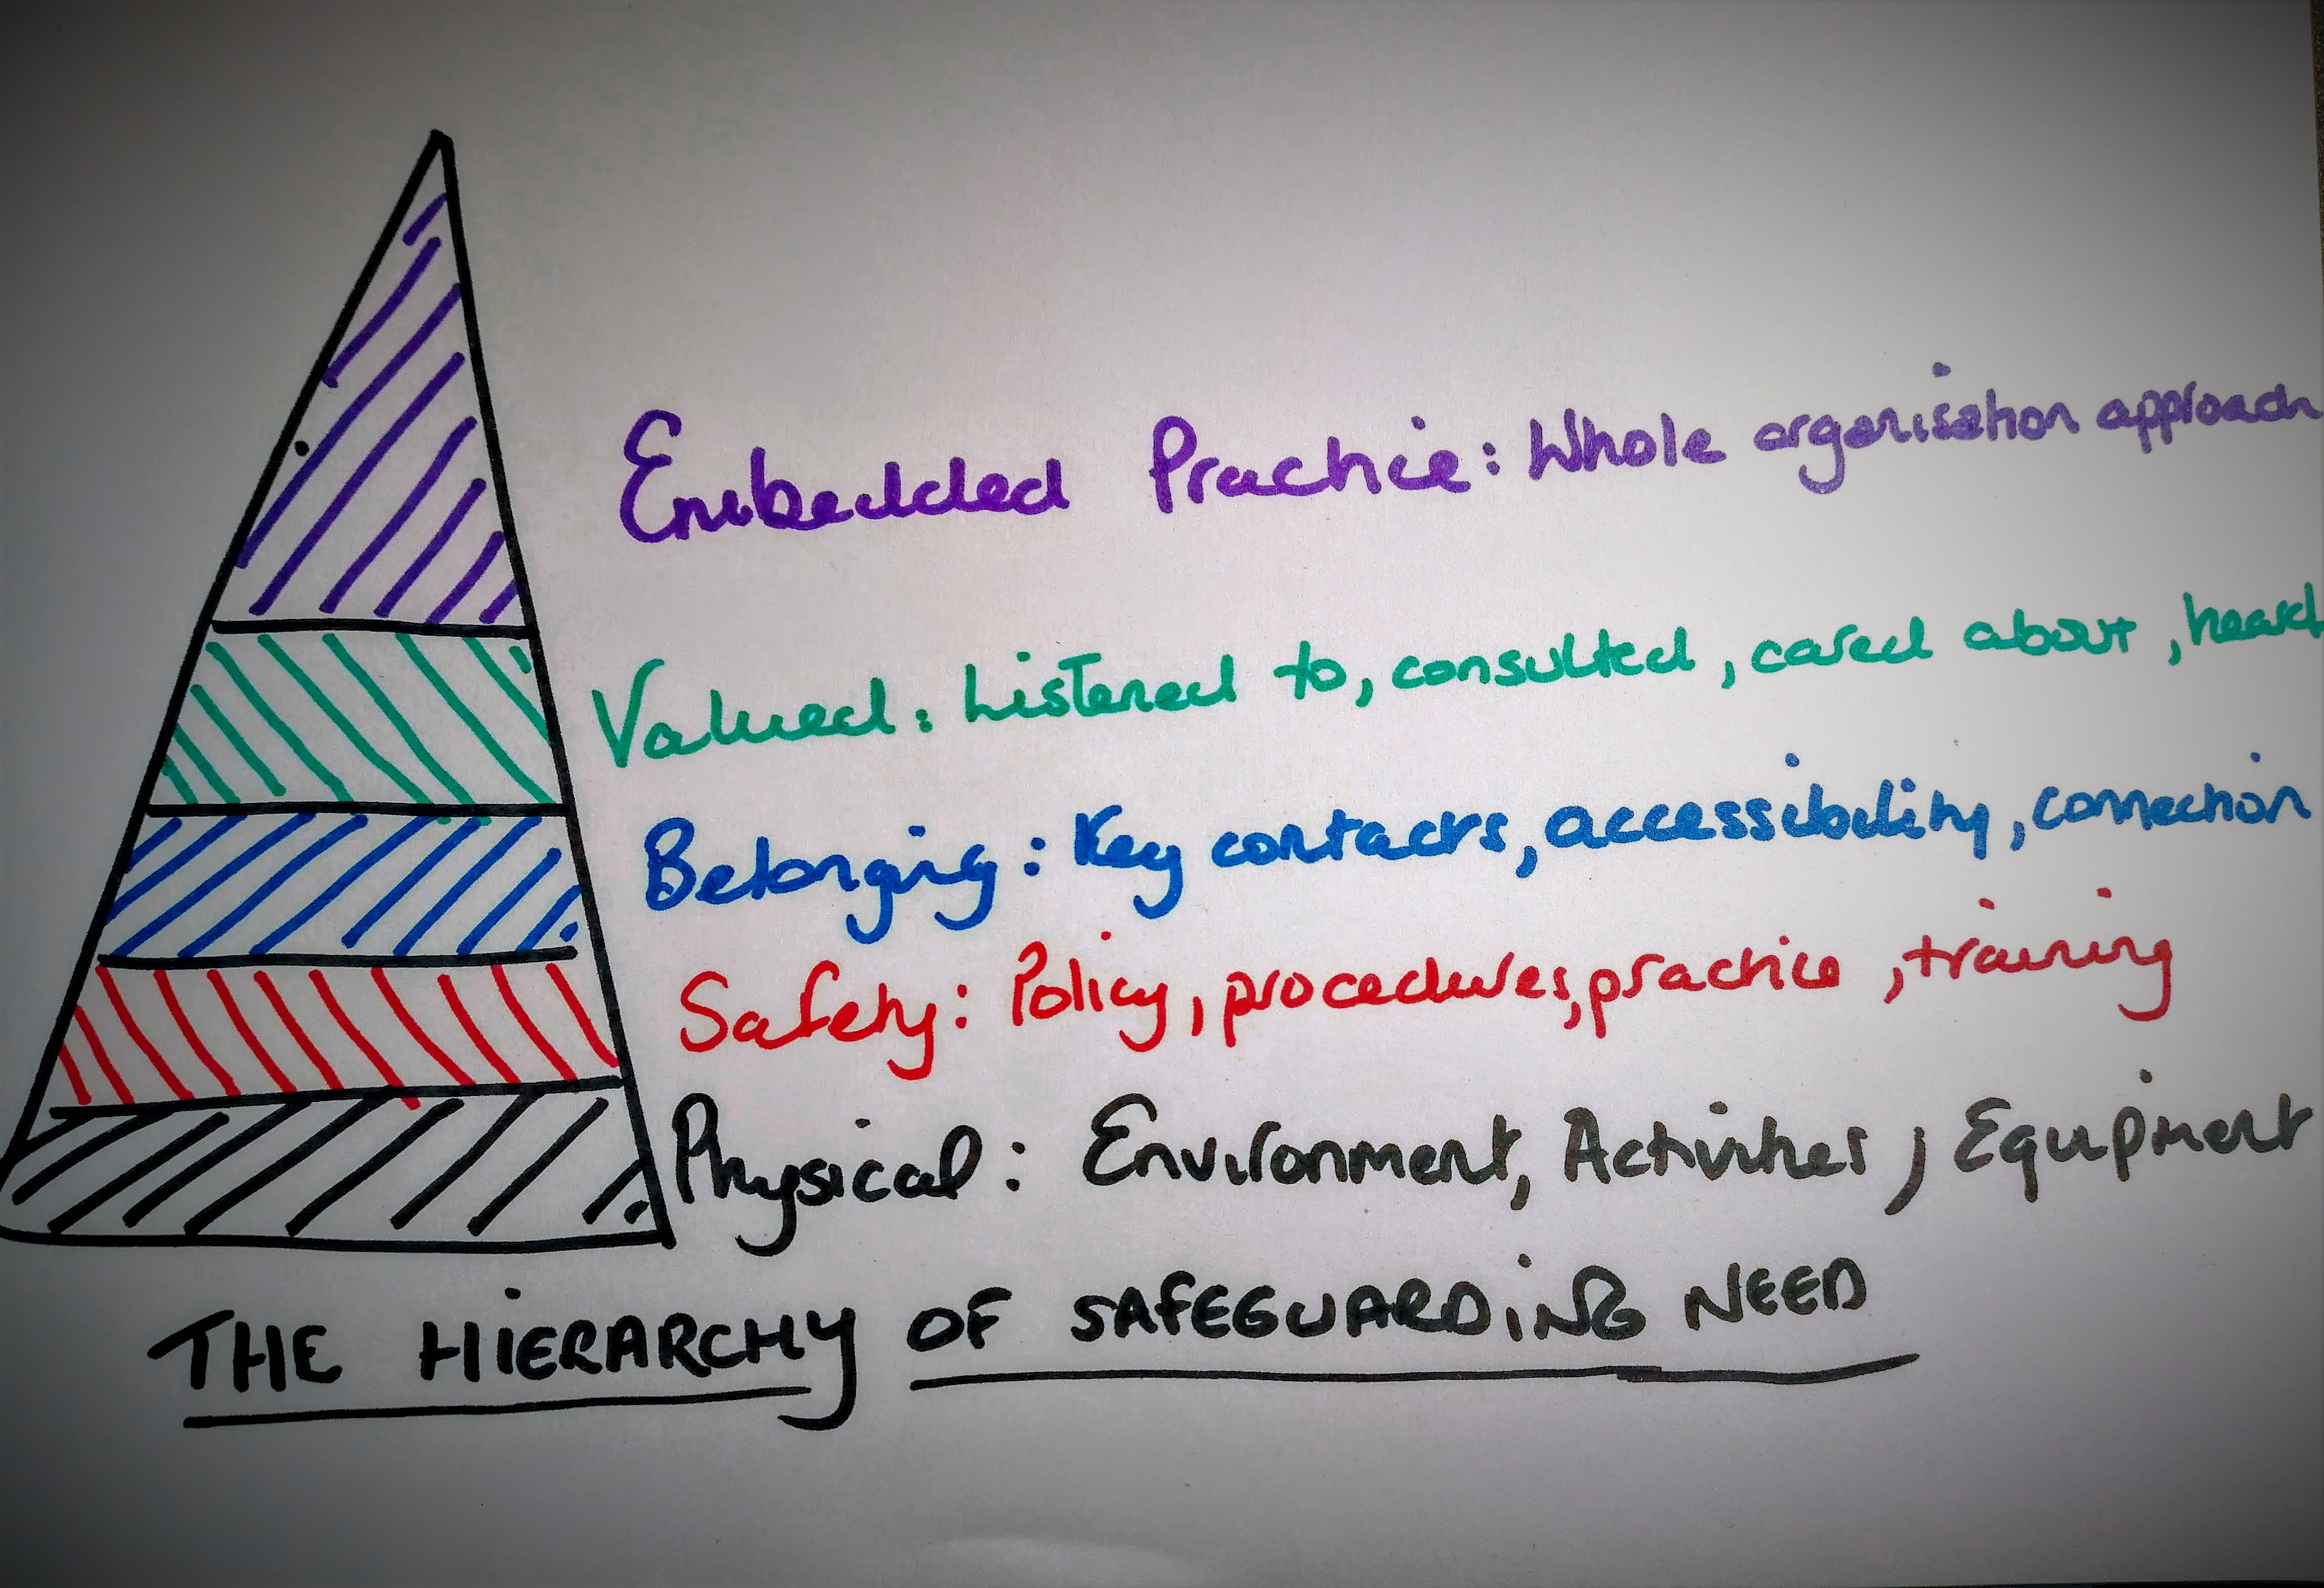 Embedded Practice: Whole organisation approach
Valued: Listened to, consulted, cared about, heard
Belonging: Key contacts, accessibility, connection
Safety: Policy, procedures, practice, training
Physical: Environment, Activities, Equipment
THE HIERARCHY OF SAFEGUARDING NEED